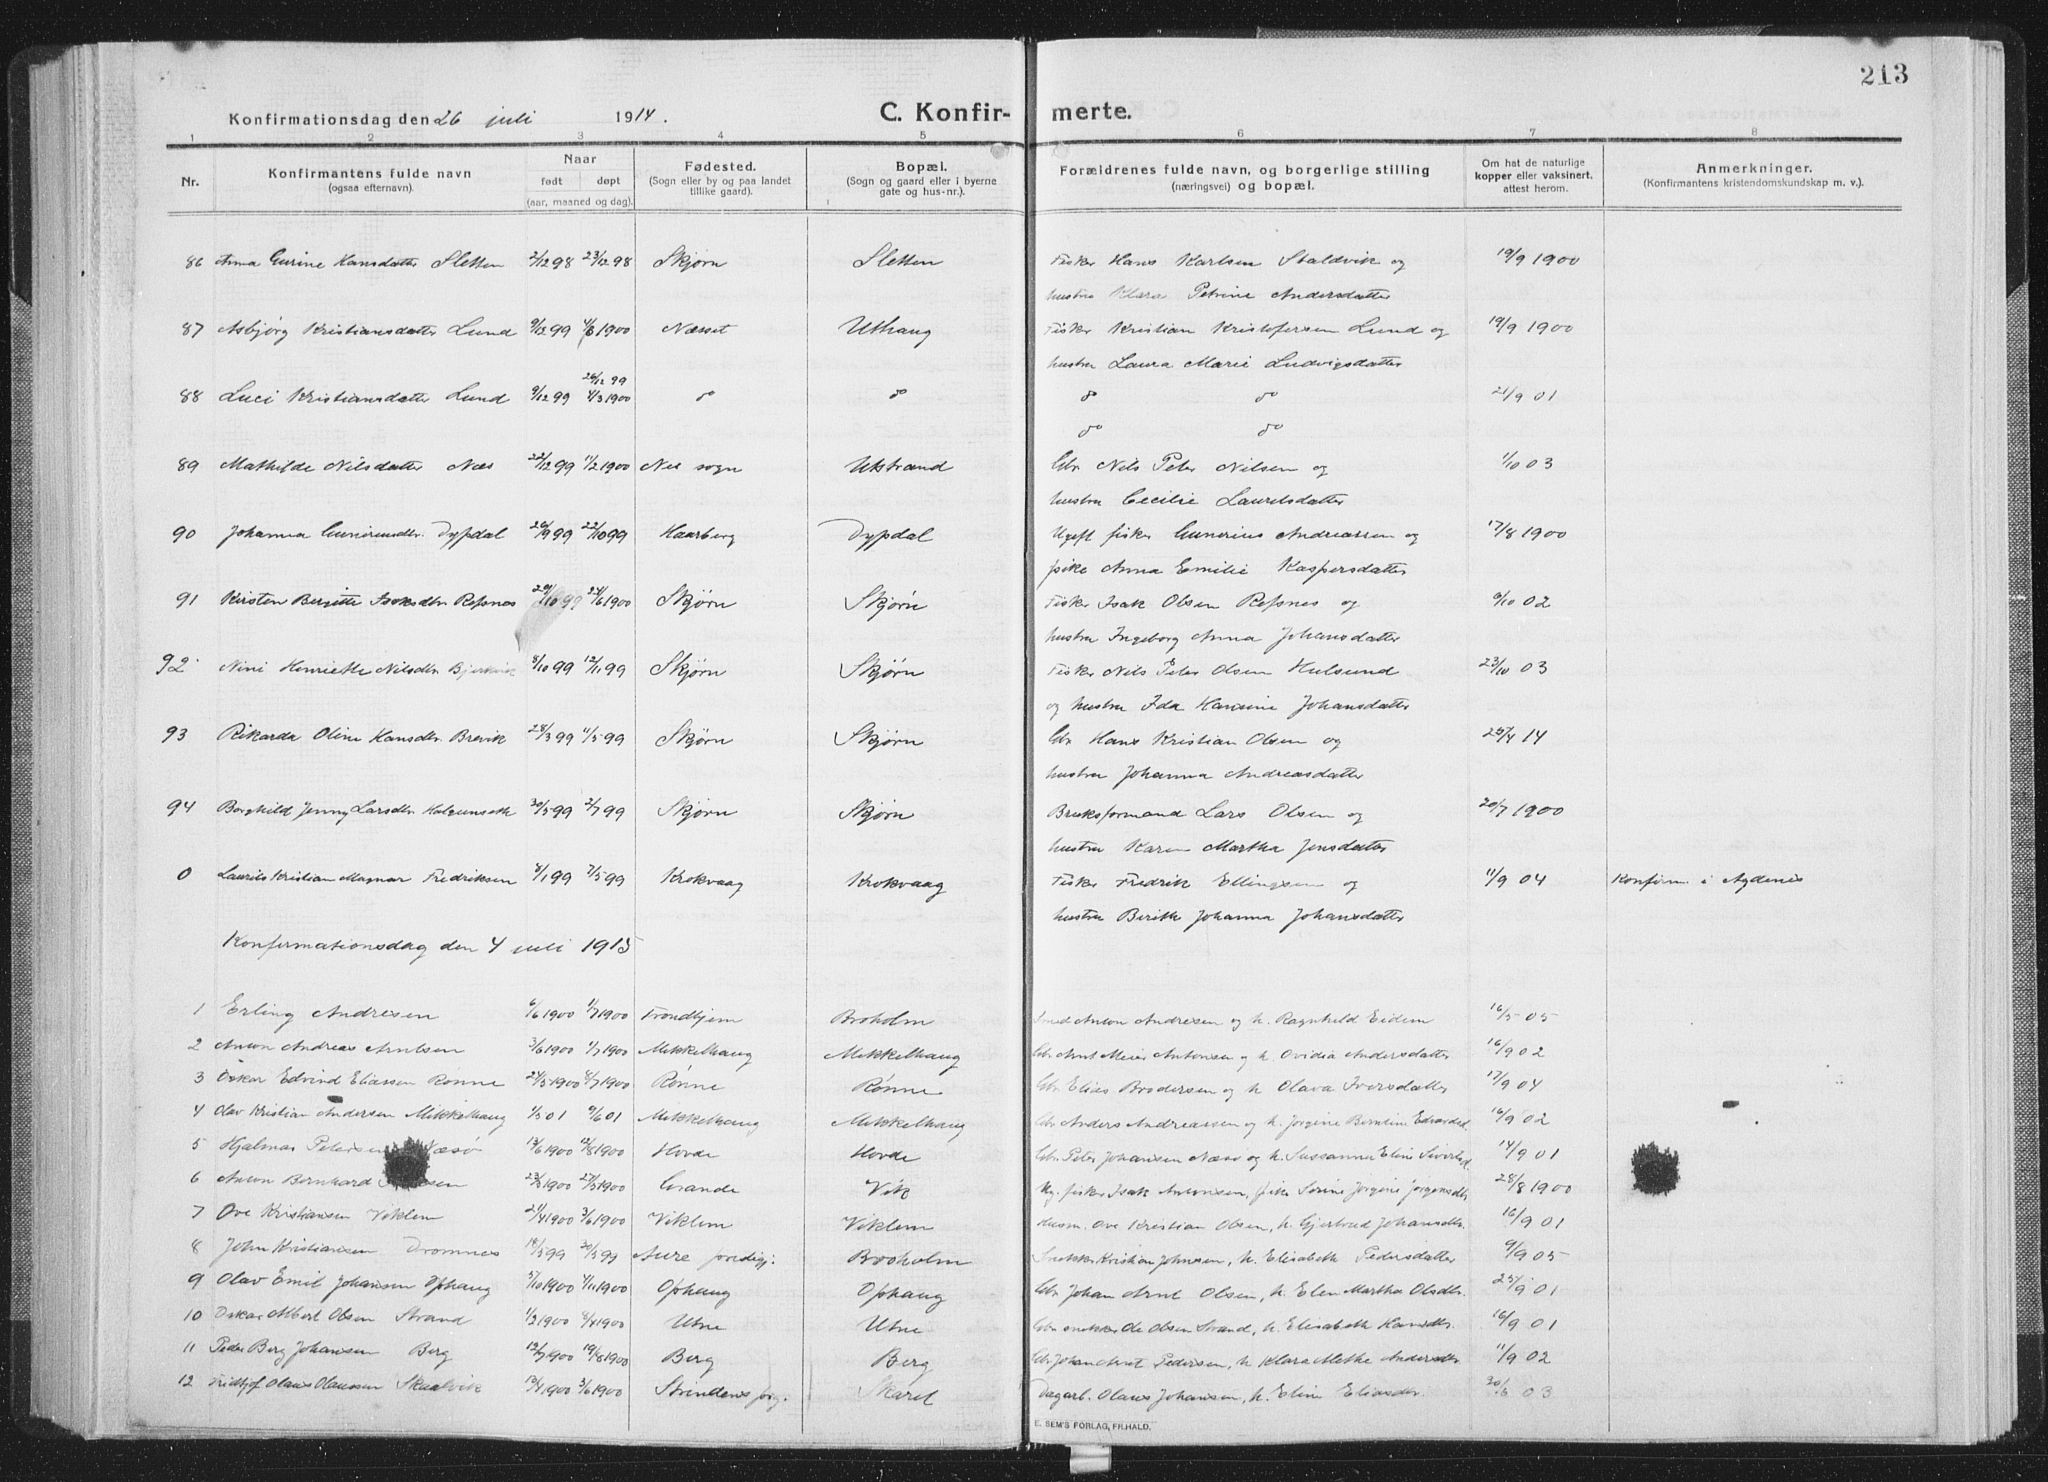 213
Konfirmationsdag den 26 juli 1914.
C. Konfir- merte.
1 2 3 4 5 6 7 8
Nr. Konfirmantens fulde navn (ogsaa efternavn). Naar født døpt (aar, maaned og dag). Fødested. (Sogn eller by og paa landet tillike gaard). Bopæl. (Sogn og gaard eller i byerne gate og hus-nr.). Forældrenes fulde navn, og borgerlige stilling (næringsvei) og bopæl. Om hat de naturlige kopper eller vaksinert, attest herom. Anmerkninger. (Konfirmantens kristendomskundskap m. v.).
86 Anna Gurine Hansdatter Sletten 2/12 98 23/12 98 Skjørn Sletten Fisker Hans Karlsen Staldvik og 19/9 1900
hustru Klara Petrine Andersdatter
87 Asbjörg Kristiansdatter Lund 9/12 99 4/3 1900 Næsset Uthaug Fisker Kristian Kristofersen Lund og 19/9 1900
hustru Laura Marie Ludvigsdatter
26/12 99
88 Luci Kristiansdatter Lund 9/12 99 4/3 1900 do do do do 21/9 01
do do
89 Mathilde Nilsdatter Næs 22/12 99 11/2 1900 Nes sogn Utstrand Gbr. Nils Peter Nilsen og 1/10 03
hustru Cecilie Lauritsdatter
90 Johanna Gunerusdtr. Dypdal 26/9 99 22/10 99 Haarberg Dypdal Ugift fisker Gunerius Andreassen og 17/8 1900
pike Anna Emilie Kaspersdatter
91 Kirsten Bergitte Isaksdtr Refsnes 29/10 99 24/6 1900 Skjørn Skjørn Fisker Isak Olsen Refsnes og 9/10 02
hustru Ingeborg Anna Johansdatter
92 Nini Henriette Nilsdtr. Bjerkvik 8/10 99 12/11 99 Skjørn Skjørn Fisker Nils Peter Olsen Hulsund 23/10 03
og hustru Ida Hansine Johansdatter
93 Rikarda Oline Hansdtr. Brevik 28/3 99 11/5 99 Skjørn Skjørn Gbr. Hans Kristian Olsen og 25/4 14
hustru Johanna Andreasdatter
94 Borghild Jenny Larsdtr. 30/5 99 2/7 99 Skjørn Skjørn Bruksformand Lars Olsen og 20/7 1900
hustru Karen Martha Jensdatter
0 Laurits Kristian Magnar Fredriksen 8/1 99 7/5 99 Krokvaag Krokvaag Fisker Fredrik Ellingsen og 11/9 04 Konfirm. i Agdenes
hustru Berith Johanna Johansdatter
Konfirmationsdag den 4 juli 1915
1 Erling Andresen 6/6 1900 1/7 1900 Trondhjem Broholm Smed Anton Andresen og h. Ragnhild Eidem 16/5 05
2 Anton Andreas Arntsen 3/6 1900 1/7 1900 Mikkelhaug Mikkelhaug Gbr. Arnt Meier Antonsen og h. Ovidia Andersdatter 16/9 02
3 Oskar Edvind Eliassen Rønne 24/5 1900 8/7 1900 Rønne Rønne Gbr. Elias Brodersen og h. Olava Iversdatter 17/9 04
4 Olav Kristian Andersen Mikkelhaug 1/5 01 9/6 01 Mikkelhaug Mikkelhaug Gbr. Anders Andreassen og h. Jorgine Berntine Edvardsd. 16/9 02
5 Hjalmar Petersen Næsø 13/6 1900 12/8 1900 Hovde Hovde Gbr. Peter Johansen Næsø og h. Sussanna Elini Sivertsd. 14/9 01
6 Anton Bernhard 23/3 1900 27/5 1900 Grande Vik Ug. fisker Isak Antonsen, pike Serine Jorgine Jørgensdtr 28/8 1900
7 Ove Kristiansen Viklem 21/4 1900 3/6 1900 Viklem Viklem Husm. Ove Kristian Olsen, h. Gjertrud Johansdtr. 16/9 01
8 John Kristiansen Dromnes 18/3 99 20/5 99 Aure prestgj: Broholm Snekker Kristian Johnsen, h. Elisabeth Pedersdatter 9/9 05
9 Olav Emil Johansen Ophaug 5/10 1900 4/11 1900 Ophaug Ophaug Gbr. Johan Arnt Olsen, h. Elen Martha Olsdtr. 25/9 01
10 Oskar Albert Olsen Strand 1/3 1900 8/4 1900 Utne Utne Gbr. snekker Ole Olsen Strand, h. Elisabeth Hansdtr. 16/9 01
11 Peder Berg Johansen Berg 12/7 1900 19/8 1900 Berg Berg Gbr. Johan Arnt Pedersen, h Klara Methe Andersdtr 11/9 02
12 Fridtjof Olaus Olaussen Skaalvik 13/4 1900 3/6 1900 Strindens prg. Skaret Dagarb. Olaus Johansen, h. Eline Eliasdtr. 20/6 03
E. SEM'S FORLAG, FR.HALD.